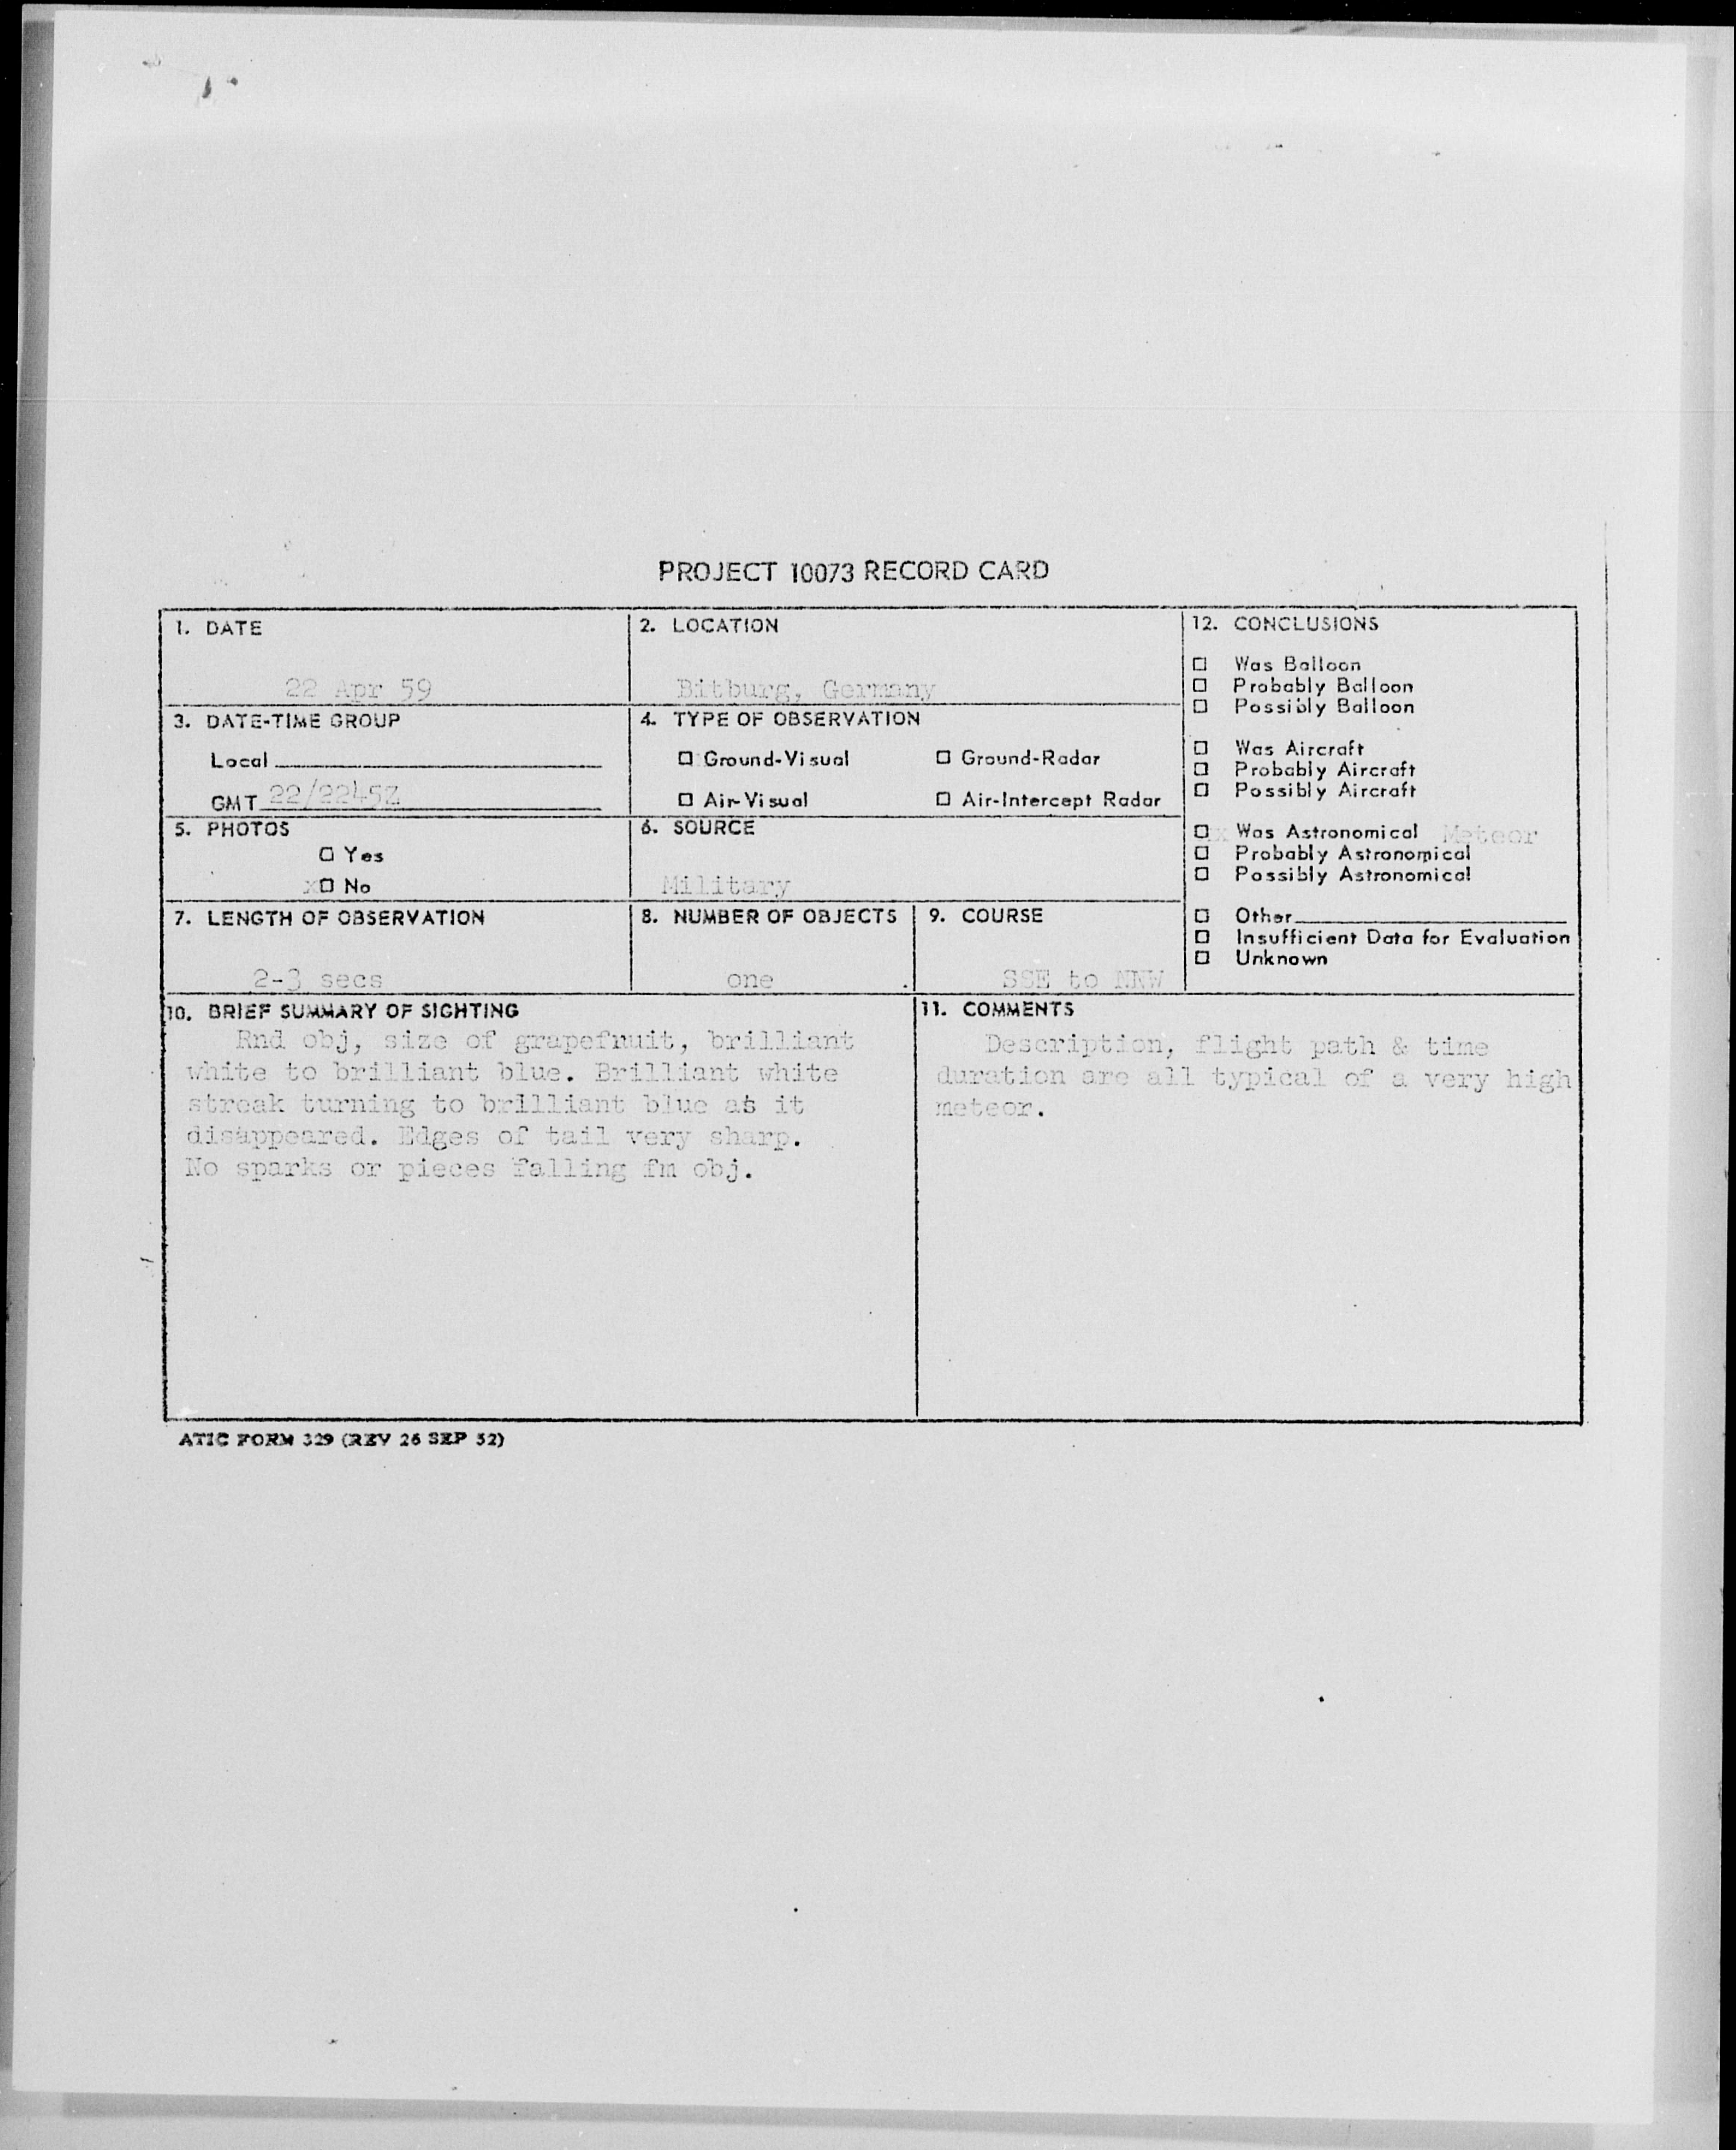 PROJECT 10073 RECORD CARD
1. DATE
22 Apr 59
2. LOCATION
Bitburg, Germany
3. DATE-TIME GROUP
Local
GMT 22/2245Z
4. TYPE OF OBSERVATION
□ Ground-Visual □ Ground-Radar
□ Air-Visual □ Air-Intercept Radar
5. PHOTOS
□ Yes
x□ No
6. SOURCE
Military
7. LENGTH OF OBSERVATION
2-3 secs
8. NUMBER OF OBJECTS
one
9. COURSE
SSE to NNW
12. CONCLUSIONS
□ Was Balloon
□ Probably Balloon
□ Possibly Balloon
□ Was Aircraft
□ Probably Aircraft
□ Possibly Aircraft
□x Was Astronomical Meteor
□ Probably Astronomical
□ Possibly Astronomical
□ Other
□ Insufficient Data for Evaluation
□ Unknown
10. BRIEF SUMMARY OF SIGHTING
Rnd obj, size of grapefruit, brilliant
white to brilliant blue. Brilliant white
streak turning to brilliant blue as it
disappeared. Edges of tail very sharp.
No sparks or pieces falling fm obj.
11. COMMENTS
Description, flight path & time
duration are all typical of a very high
meteor.
ATIC FORM 329 (REV 26 SEP 52)